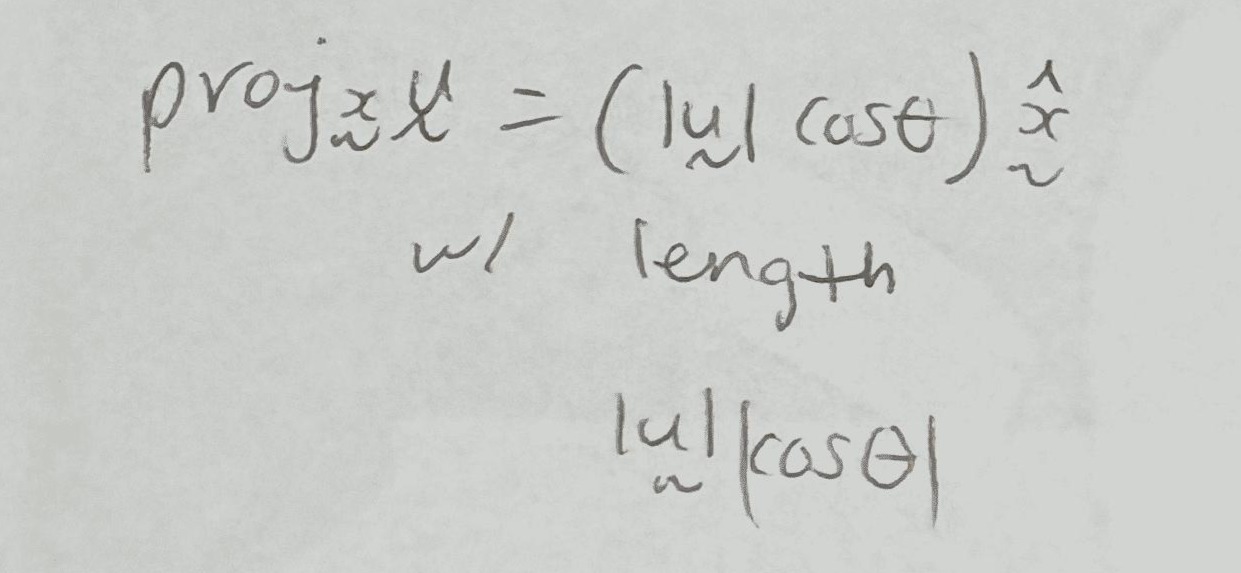 proj_x̰ ṵ = (|ṵ| cosθ) x̰̂
w/ length
|ṵ| |cosθ|